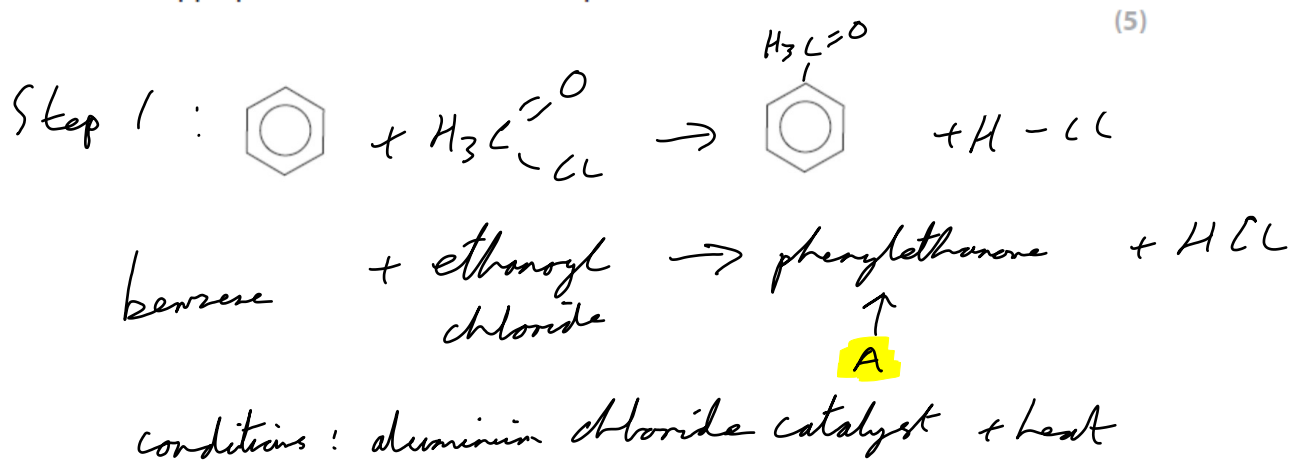 (5)
H₃C=O
Step 1 : + H₃C =O - Cl → + H - Cl
benzene + ethanoyl chloride → phenylethanone + HCl
↑
A
conditions : aluminium chloride catalyst + heat